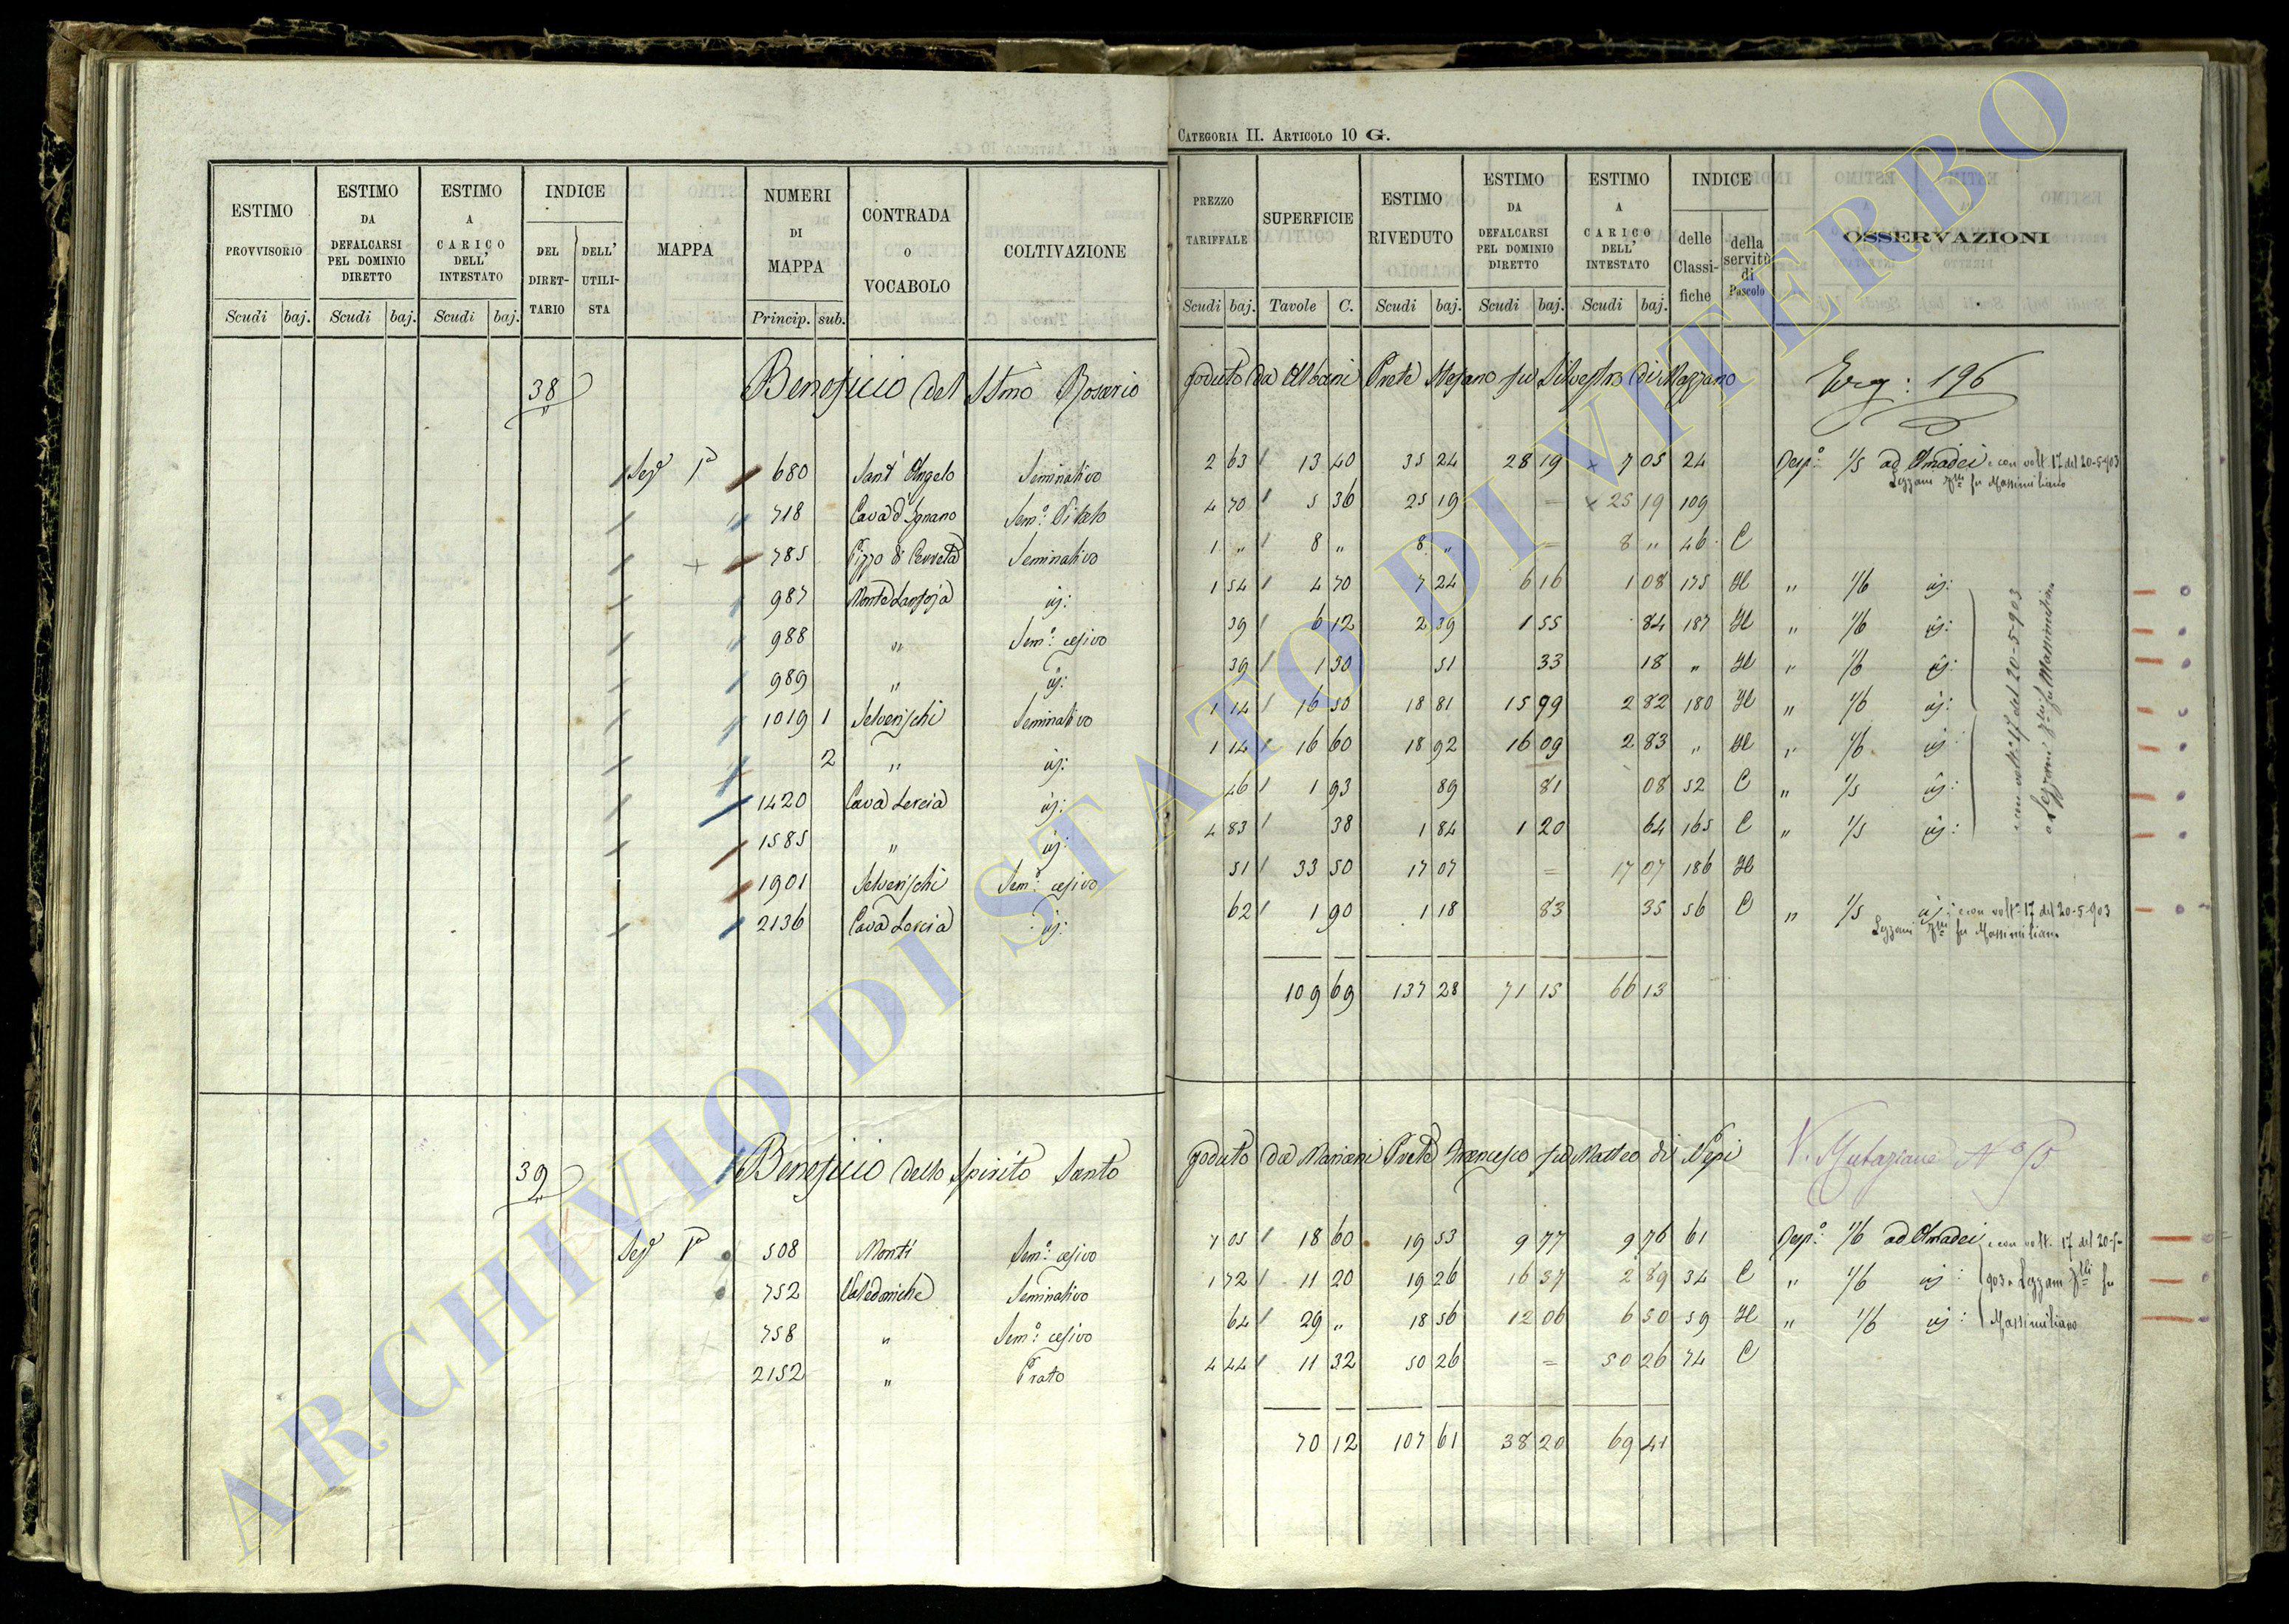 CATEGORIA II. ARTICOLO 10 G.
ESTIMO PROVVISORIO | ESTIMO DA DEFALCARSI PEL DOMINIO DIRETTO | ESTIMO A CARICO DELL' INTESTATO | INDICE | MAPPA | NUMERI DI MAPPA | CONTRADA O VOCABOLO | COLTIVAZIONE | PREZZO TARIFFALE | SUPERFICIE | ESTIMO RIVEDUTO | ESTIMO DA DEFALCARSI PEL DOMINIO DIRETTO | ESTIMO A CARICO DELL' INTESTATO | INDICE | OSSERVAZIONI
DEL DIRETTARIO | DELL' UTILISTA | delle Classifiche | della servitù di Pascolo
Scudi | baj. | Scudi | baj. | Scudi | baj. | Princip. | sub. | Scudi | baj. | Tavole | C. | Scudi | baj. | Scudi | baj. | Scudi | baj.
38 Beneficio del SSmo Rosario goduto da Albani Prete Stefano fu Silvestro di Mazzano 196
Sez. 1a 680 Sant' Angelo Seminativo 2 63 13 40 35 24 28 19 x 7 05 24 Desp.o 1/5 ad Amadei e con volt. 17 del 20-5-903
Lezzani flli fu Massimiliano
718 Cava d'Ignano Sem.o Vitato 4 70 5 36 25 19 = x 25 19 109
+ 785 Pizzo di Cerreta Seminativo 1 " 8 " 8 " = 8 " 46 C
987 Monte Lanfoja id: 1 54 4 70 7 24 6 16 1 08 175 H " 1/6 id:
988 " Sem.o cesivo 39 6 12 2 39 1 55 84 187 H " 1/6 id:
989 " id: 39 1 30 51 33 18 " H " 1/6 id:
1019 1 Selverischi Seminativo 1 14 16 50 18 81 15 99 2 82 180 H " 1/6 id:
2 " id: 1 14 16 60 18 92 16 09 2 83 " H " 1/6 id:
1420 Cava Lercia id: 46 1 93 89 81 08 52 C " 1/5 id:
1585 " id: 4 83 38 1 84 1 20 64 165 C " 1/5 id:
e con volt. 17 del 20-5-903
a Lezzani flli fu Massimiliano
1901 Selverischi Sem.o cesivo 51 33 50 17 07 = 17 07 186 H
2136 Cava Lercia id: 62 1 90 1 18 83 35 56 C " 1/5 id: e con volt. 17 del 20-5-903
Lezzani flli fu Massimiliano
109 69 137 28 71 15 66 13
39 Beneficio dello Spirito Santo goduto da Mariani Prete Francesco fu Matteo di Nepi V. Mutazione No 5
Sez. 1a 508 Monti Sem.o cesivo 1 05 18 60 19 53 9 77 9 76 61 Desp.o 1/6 ad Amadei e con volt. 17 del 20-5-
752 Valedoniche Seminativo 1 72 11 20 19 26 16 37 2 89 34 C " 1/6 id: 903 a Lezzani flli fu
758 " Sem.o cesivo 64 29 " 18 56 12 06 6 50 59 H " 1/6 id: Massimiliano
2152 " Prato 4 44 11 32 50 26 = 50 26 74 C
70 12 107 61 38 20 69 41
ARCHIVIO DI STATO DI VITERBO